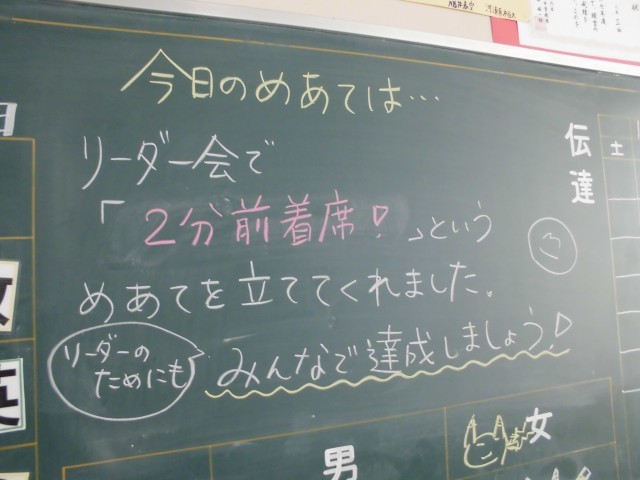 今日のめあては…
リーダー会で
「2分前着席!」という
めあてを立ててくれました。
リーダーの
ためにも
みんなで達成しましょう!
伝達
土
男
女